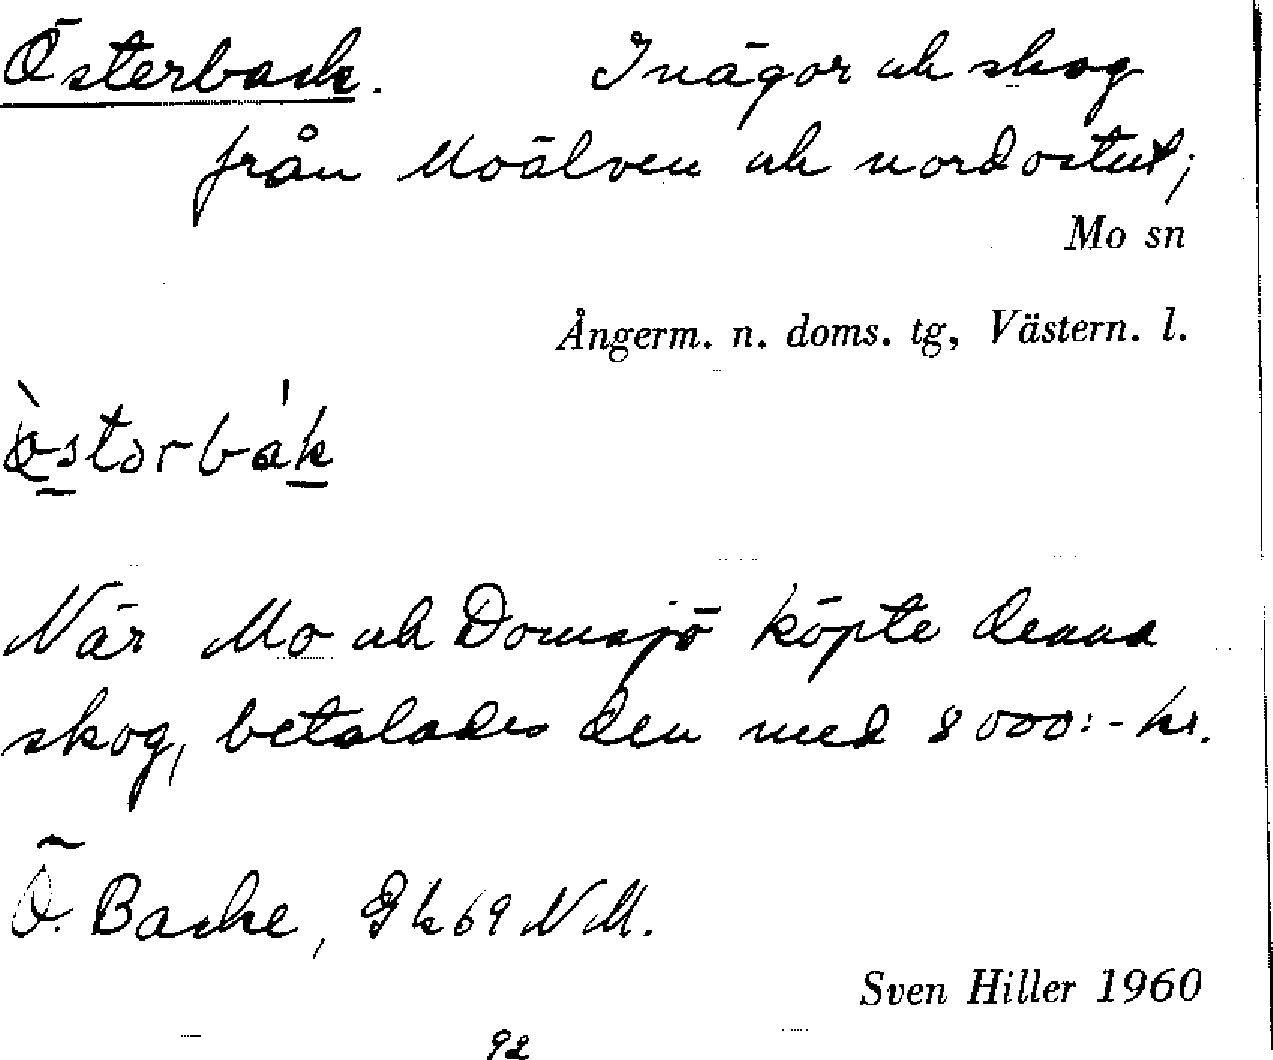 Österback. Inägor och skog
från Moälven och nordostut;
Mo sn
Ångerm. n. doms. tg, Västern. l.
När Mo och Domsjö köpte denna
skog, betalades den med 8000:- kr.
Ö. Backe, Gk 69 NM.
Sven Hiller 1960
92